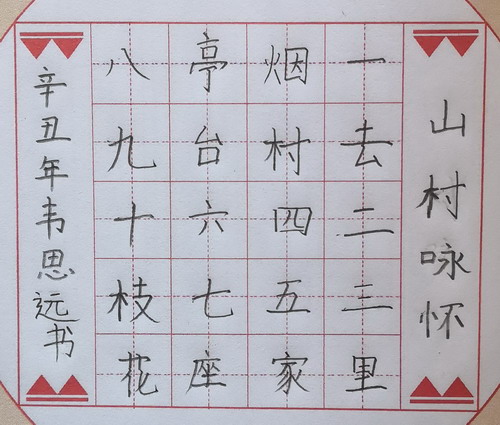 山村咏怀
一去二三里
烟村四五家
亭台六七座
八九十枝花
辛丑年韦思远书